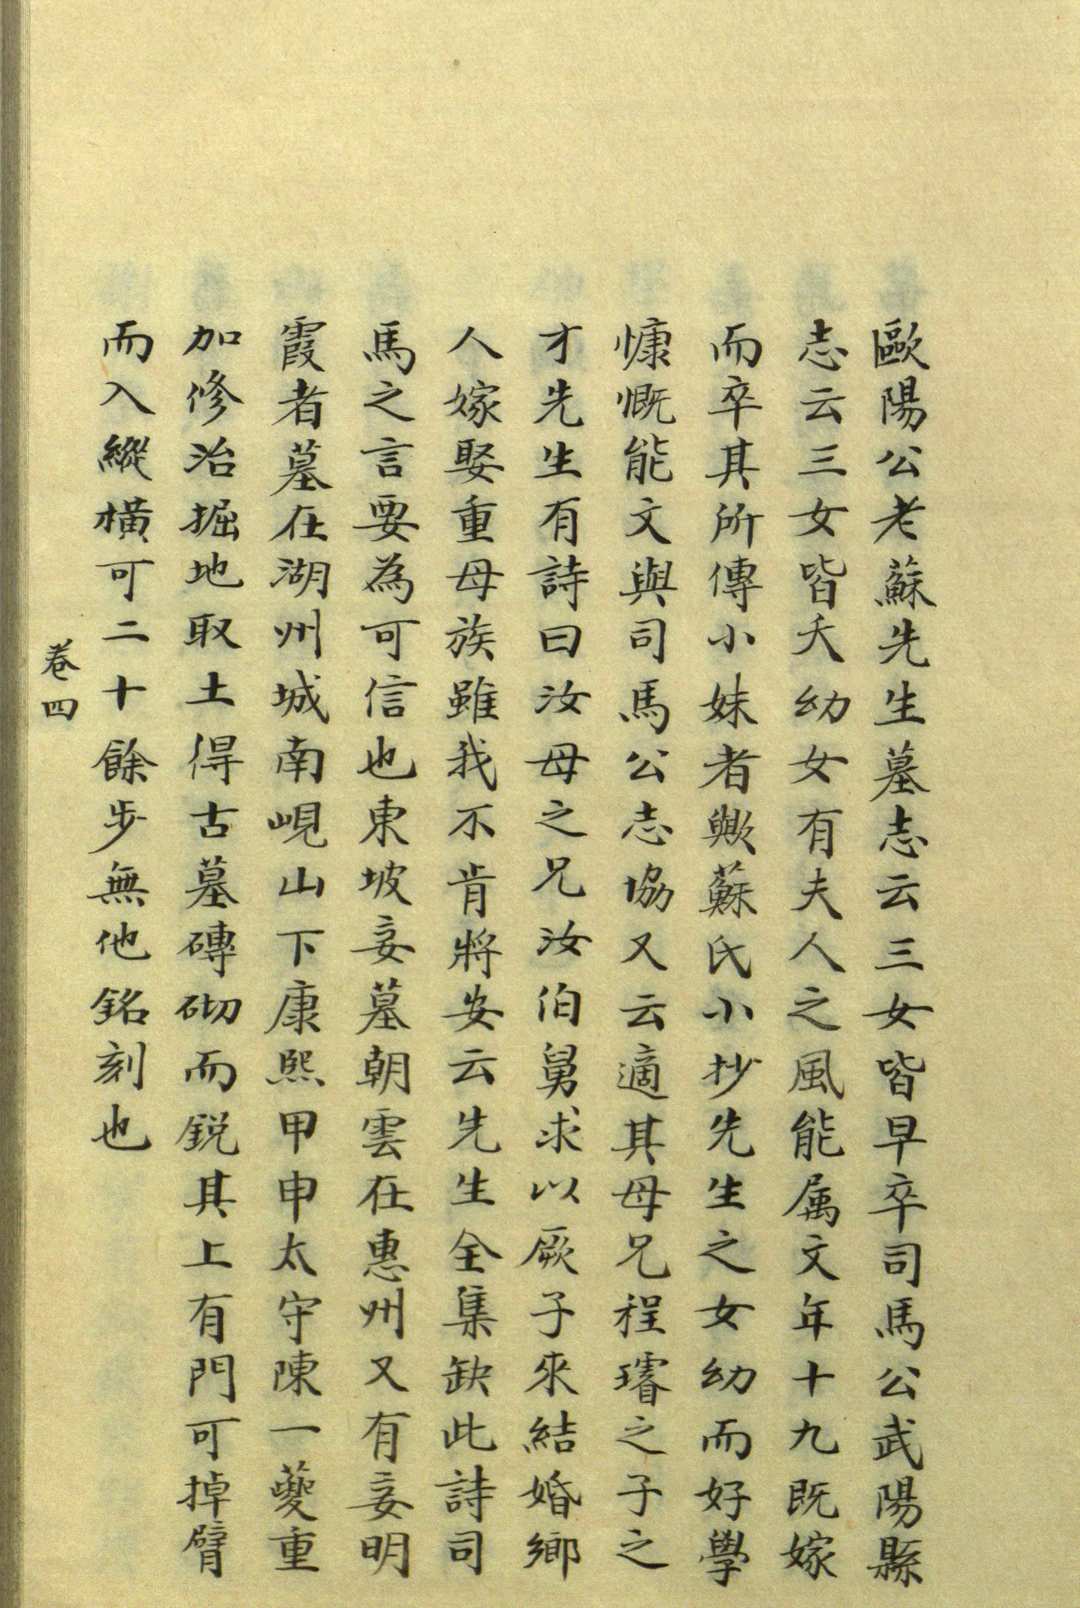 歐陽公老蘇先生墓志云三女皆早卒司馬公武陽縣
志云三女皆夭幼女有夫人之風能属文年十九既嫁
而卒其所傳小妹者歟蘇氏小抄先生之女幼而好學
慷慨能文與司馬公志協又云適其母兄程璿之子之
才先生有詩曰汝母之兄汝伯舅求以厥子來結婚鄉
人嫁娶重母族雖我不肯將安云先生全集缺此詩司
馬之言要為可信也東坡妾墓朝雲在惠州又有妾明
霞者墓在湖州城南峴山下康熙甲申太守陳一夔重
加修治掘地取土得古墓磚砌而銳其上有門可掉臂
而入縱橫可二十餘步無他銘刻也
卷四